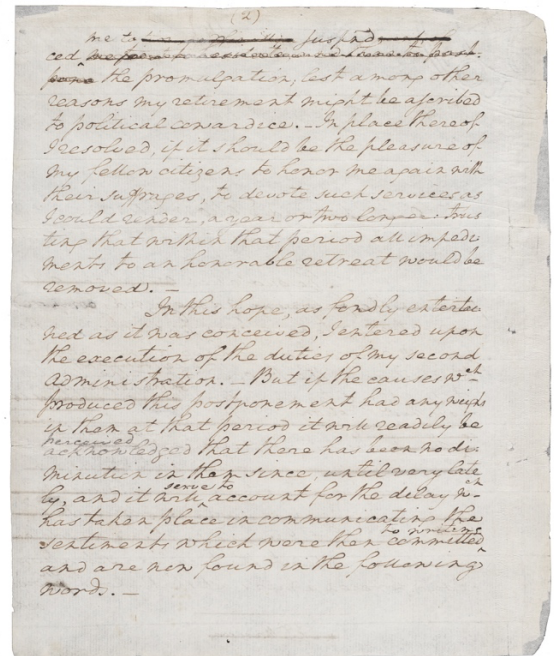 (2)
me to suspend
ced
pone the promulgation, lest among other
reasons my retirement might be ascribed
to political cowardice. _ In place thereof
I resolved, if it should be the pleasure of
my fellow citizens to honor me again with
their suffrages, to devote such services as
I could render, a year or two longer trus
ting that within that period all impedi
ments to an honorable retreat would be
removed. _
In this hope, as fondly entertai
ned as it was conceived, I entered upon
the execution of the duties of my second
administration. _ But if the causes wch
produced this postponement had any weight
in them at that period it will readily be
perceived
acknowledged that there has been no di-
minution in them since, until very late
serve to
ly, and it will account for the delay wch
has taken place in communicating the
to writing
sentiments which were then committed
and are now found in the following
words. _